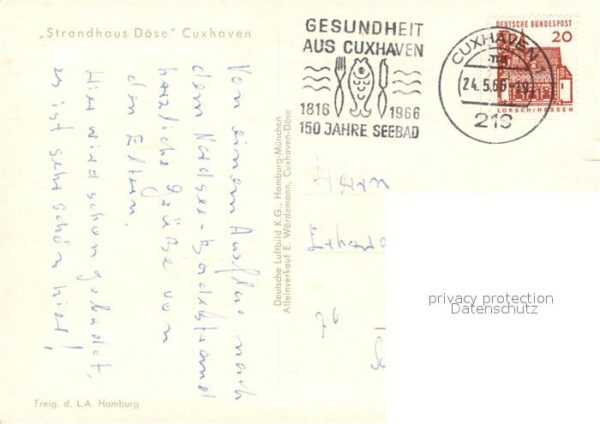 „Strandhaus Döse" Cuxhaven
Von einem Ausflug nach
dem Nordsee-Badestrand
herzliche Grüße von
den Eltern.
Hier wird schon gebadet,
es ist sehr schön hier!
Freig. d. L.A. Hamburg
Deutsche Luftbild K.G., Hamburg-München
Alleinverkauf E. Wördemann, Cuxhaven-Döse
GESUNDHEIT
AUS CUXHAVEN
1816 1966
150 JAHRE SEEBAD
CUXHAVEN 1
24.5.66
219
DEUTSCHE BUNDESPOST
20
LORSCH/HESSEN
Herrn
privacy protection
Datenschutz